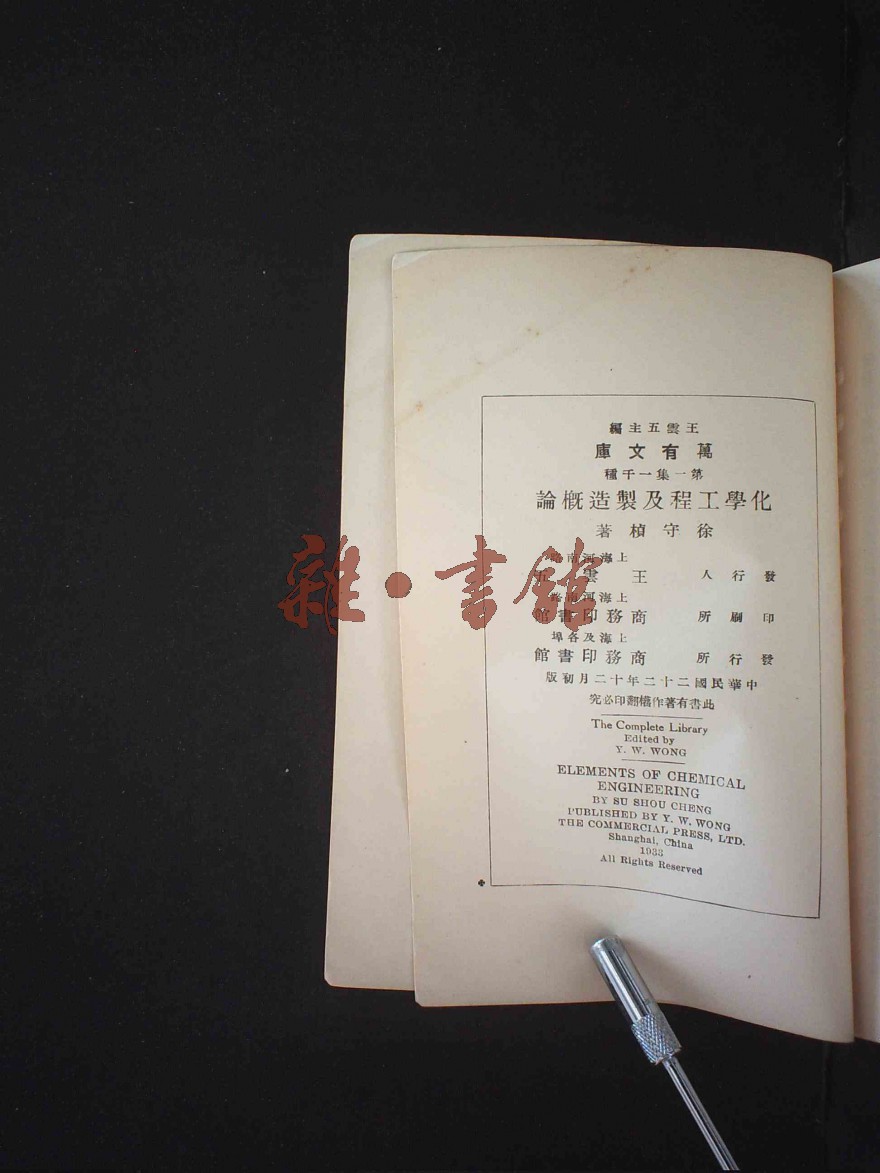 王雲五主編
萬有文庫
第一集一千種
化學工程及製造概論
徐守楨著
上海河南路
發行人 王雲五
上海河南路
印刷所 商務印書館
上海及各埠
發行所 商務印書館
中華民國二十二年十二月初版
此書有著作權翻印必究
The Complete Library
Edited by
Y. W. WONG
ELEMENTS OF CHEMICAL
ENGINEERING
BY SU SHOU CHENG
PUBLISHED BY Y. W. WONG
THE COMMERCIAL PRESS, LTD.
Shanghai, China
1933
All Rights Reserved
雜·書館